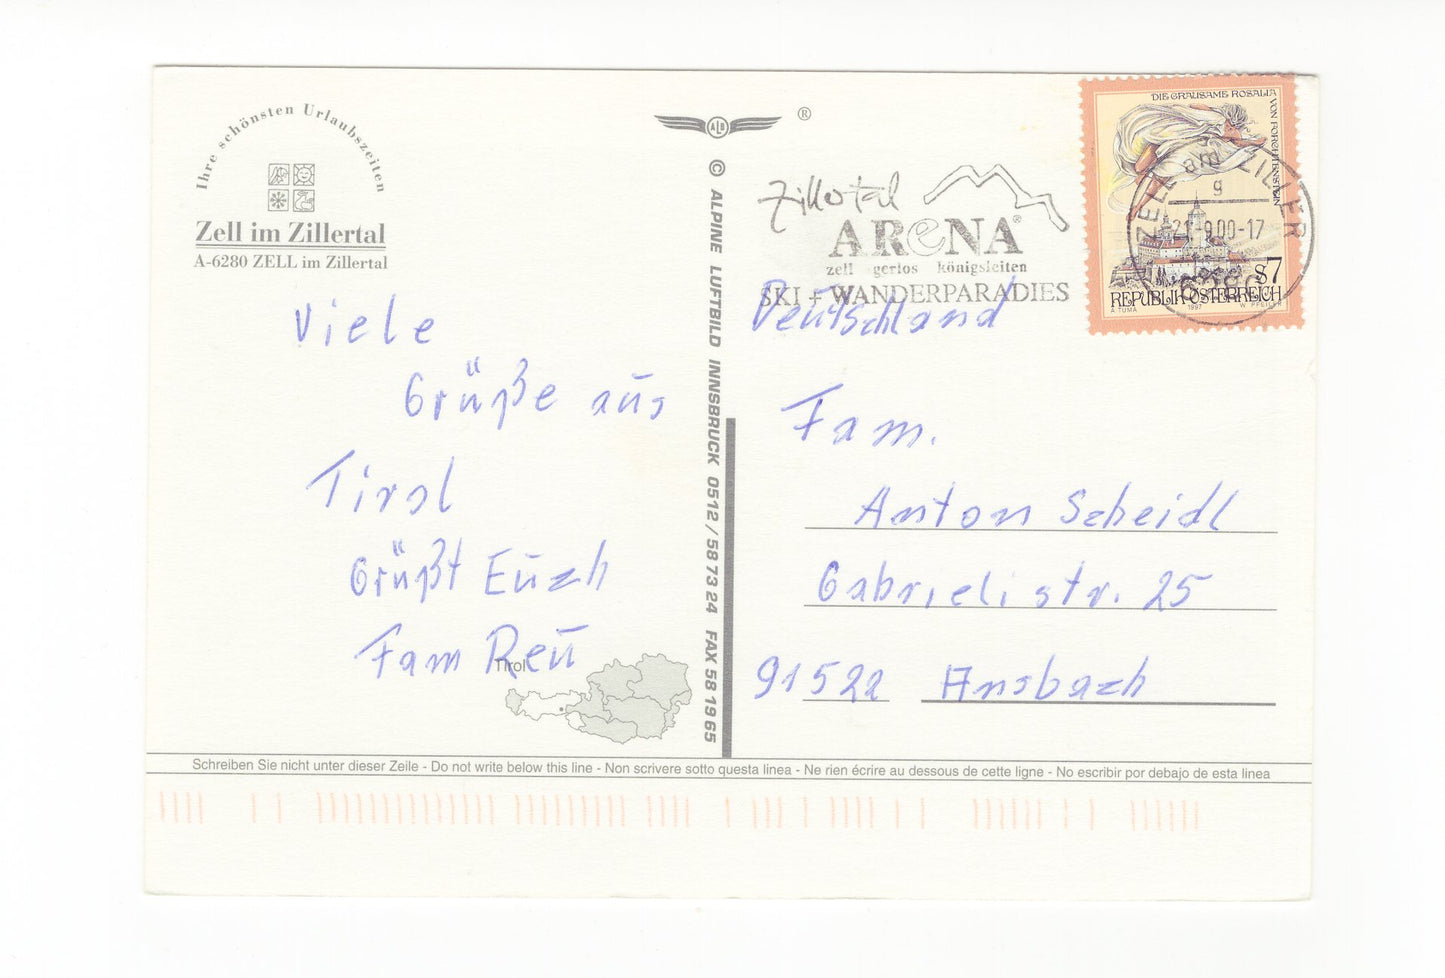 Ihre schönsten Urlaubszeiten
Zell im Zillertal
A-6280 ZELL im Zillertal
Viele
Grüße aus
Tirol
Grüßt Euch
Fam Reu
Tirol
ALB ®
© ALPINE LUFTBILD INNSBRUCK 0512 / 58 73 24 FAX 58 19 65
Zillertal
ARENA®
zell gerlos königsleiten
SKI + WANDERPARADIES
DIE GRAUSAME ROSALIA VON FORCHTENSTEIN
S7
REPUBLIK ÖSTERREICH
A. TUMA 1997 W. PFEILER
ZELL am ZILLER
g
21.-9.00-17
6280
Deutschland
Fam.
Anton Scheidl
Gabrielistr. 25
91522 Ansbach
Schreiben Sie nicht unter dieser Zeile - Do not write below this line - Non scrivere sotto questa linea - Ne rien écrire au dessous de cette ligne - No escribir por debajo de esta linea